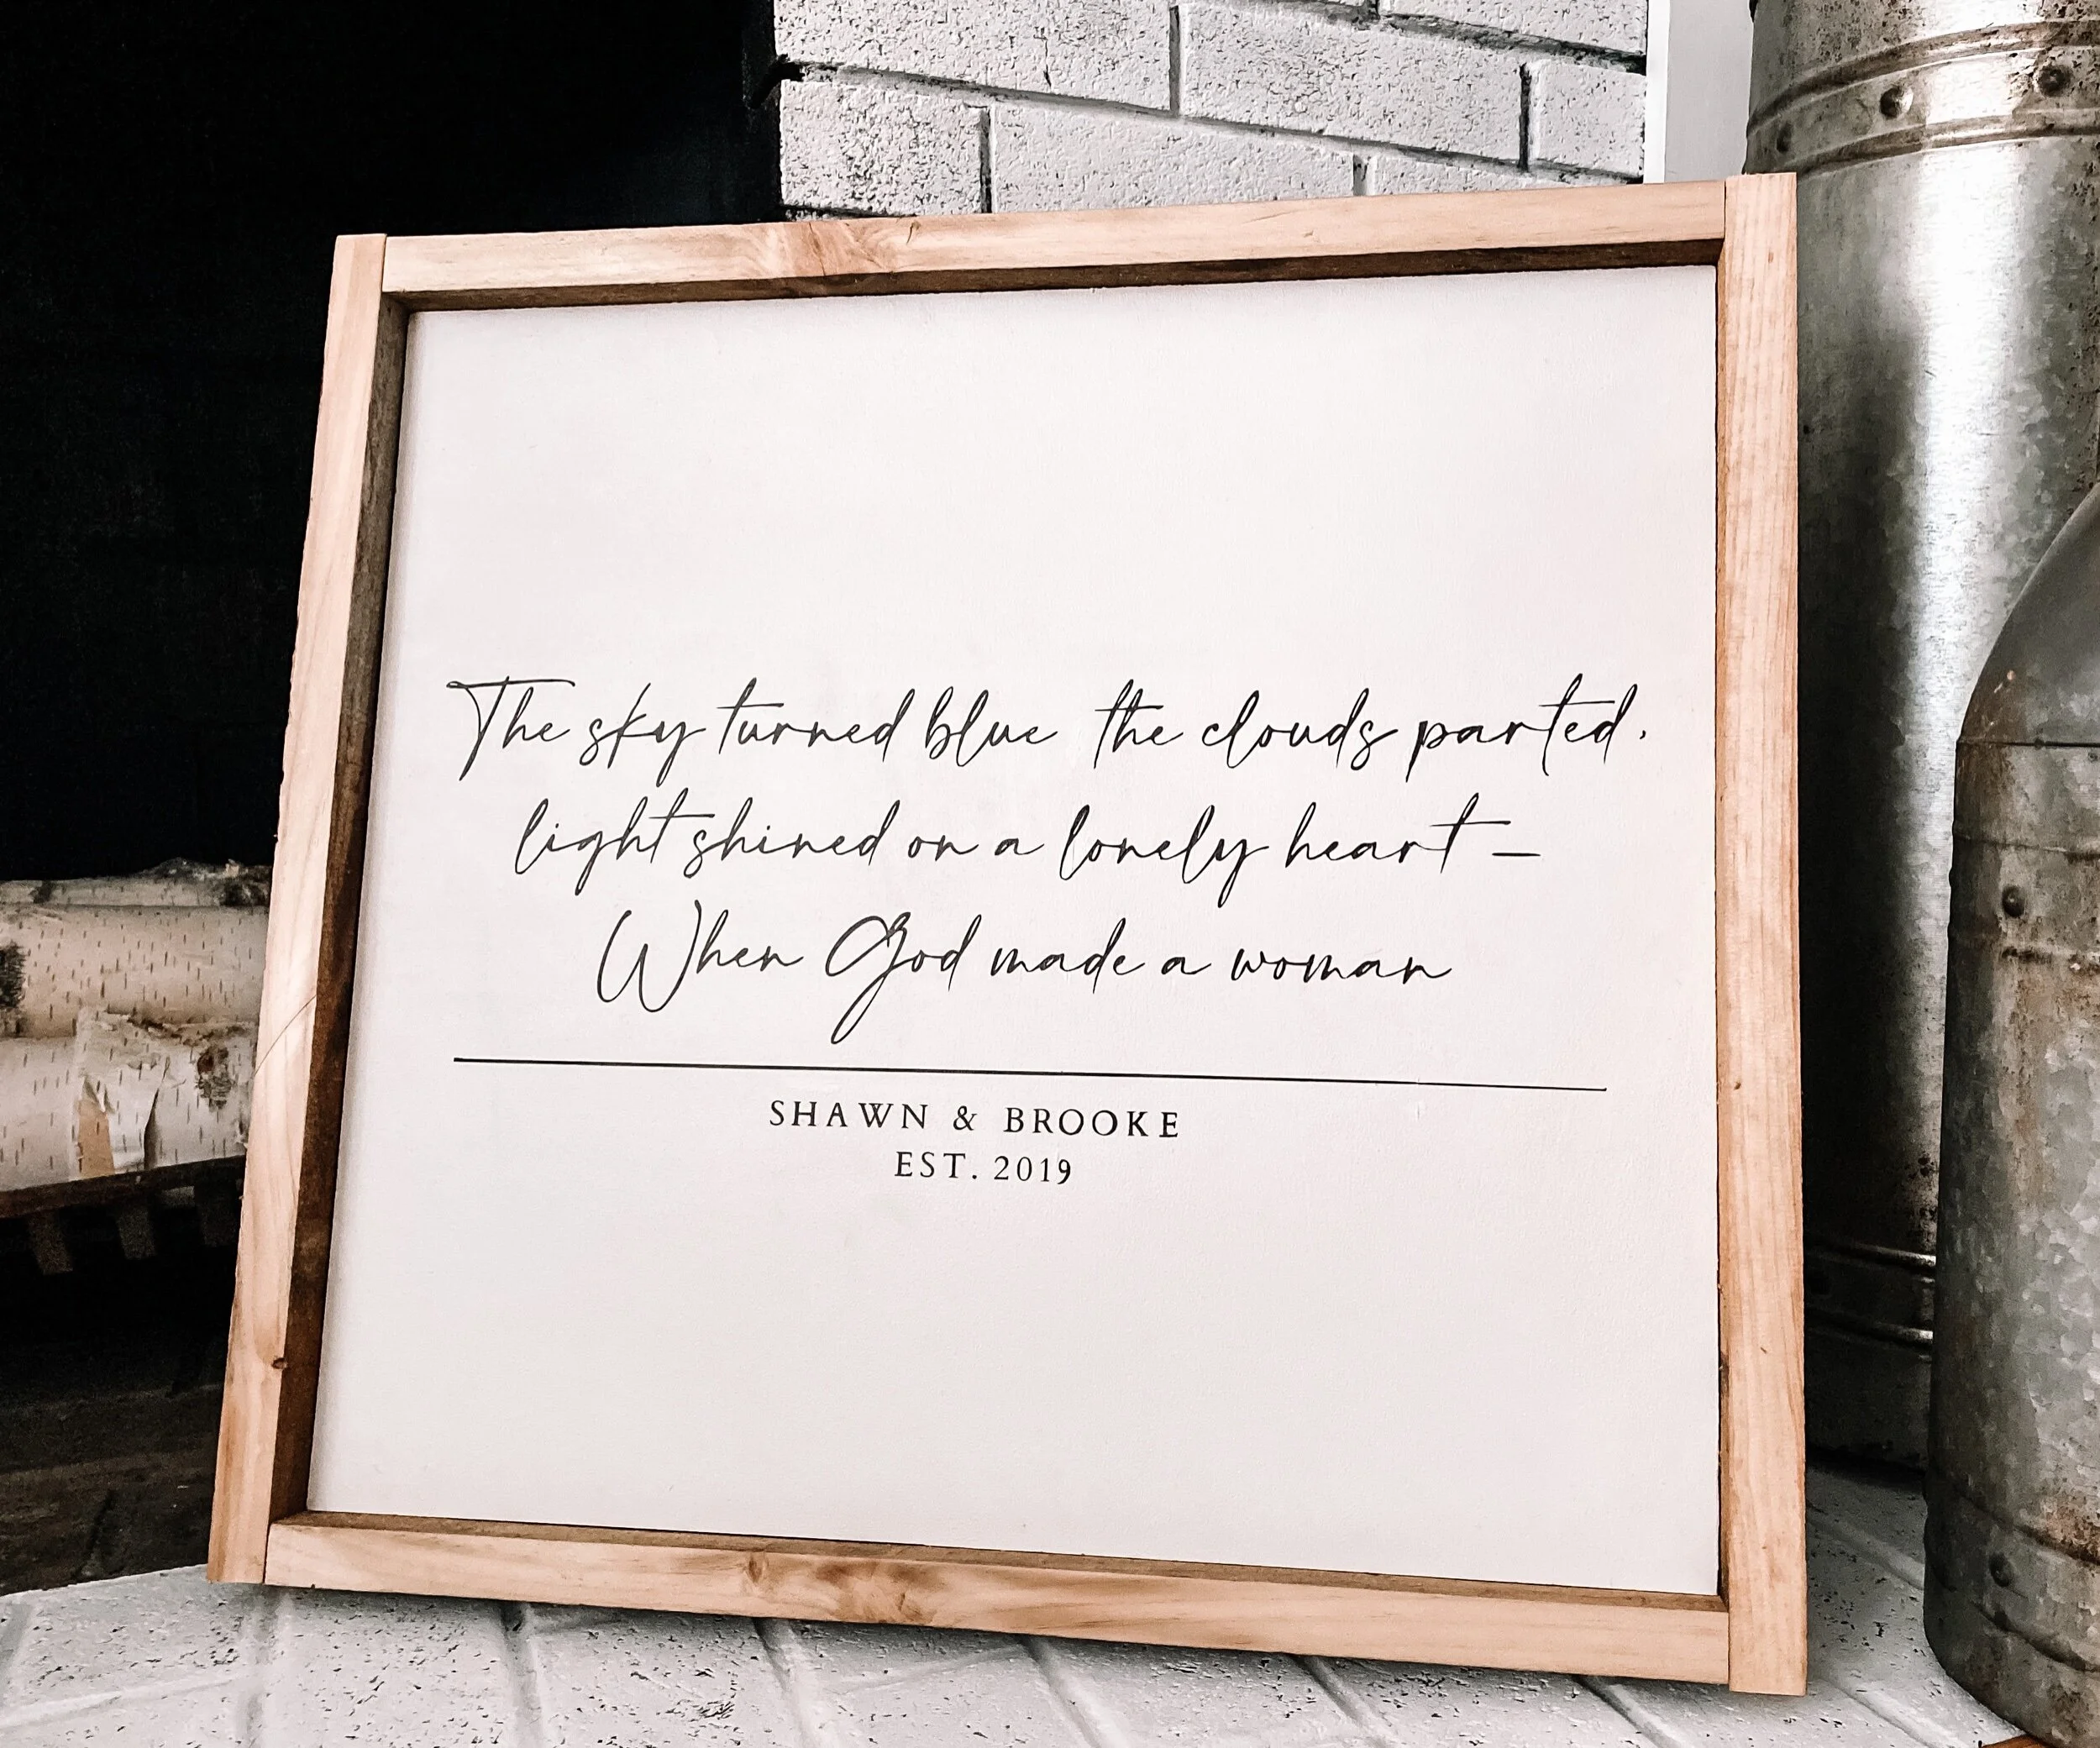 The sky turned blue the clouds parted.
light shined on a lonely heart –
When God made a woman
SHAWN & BROOKE
EST. 2019